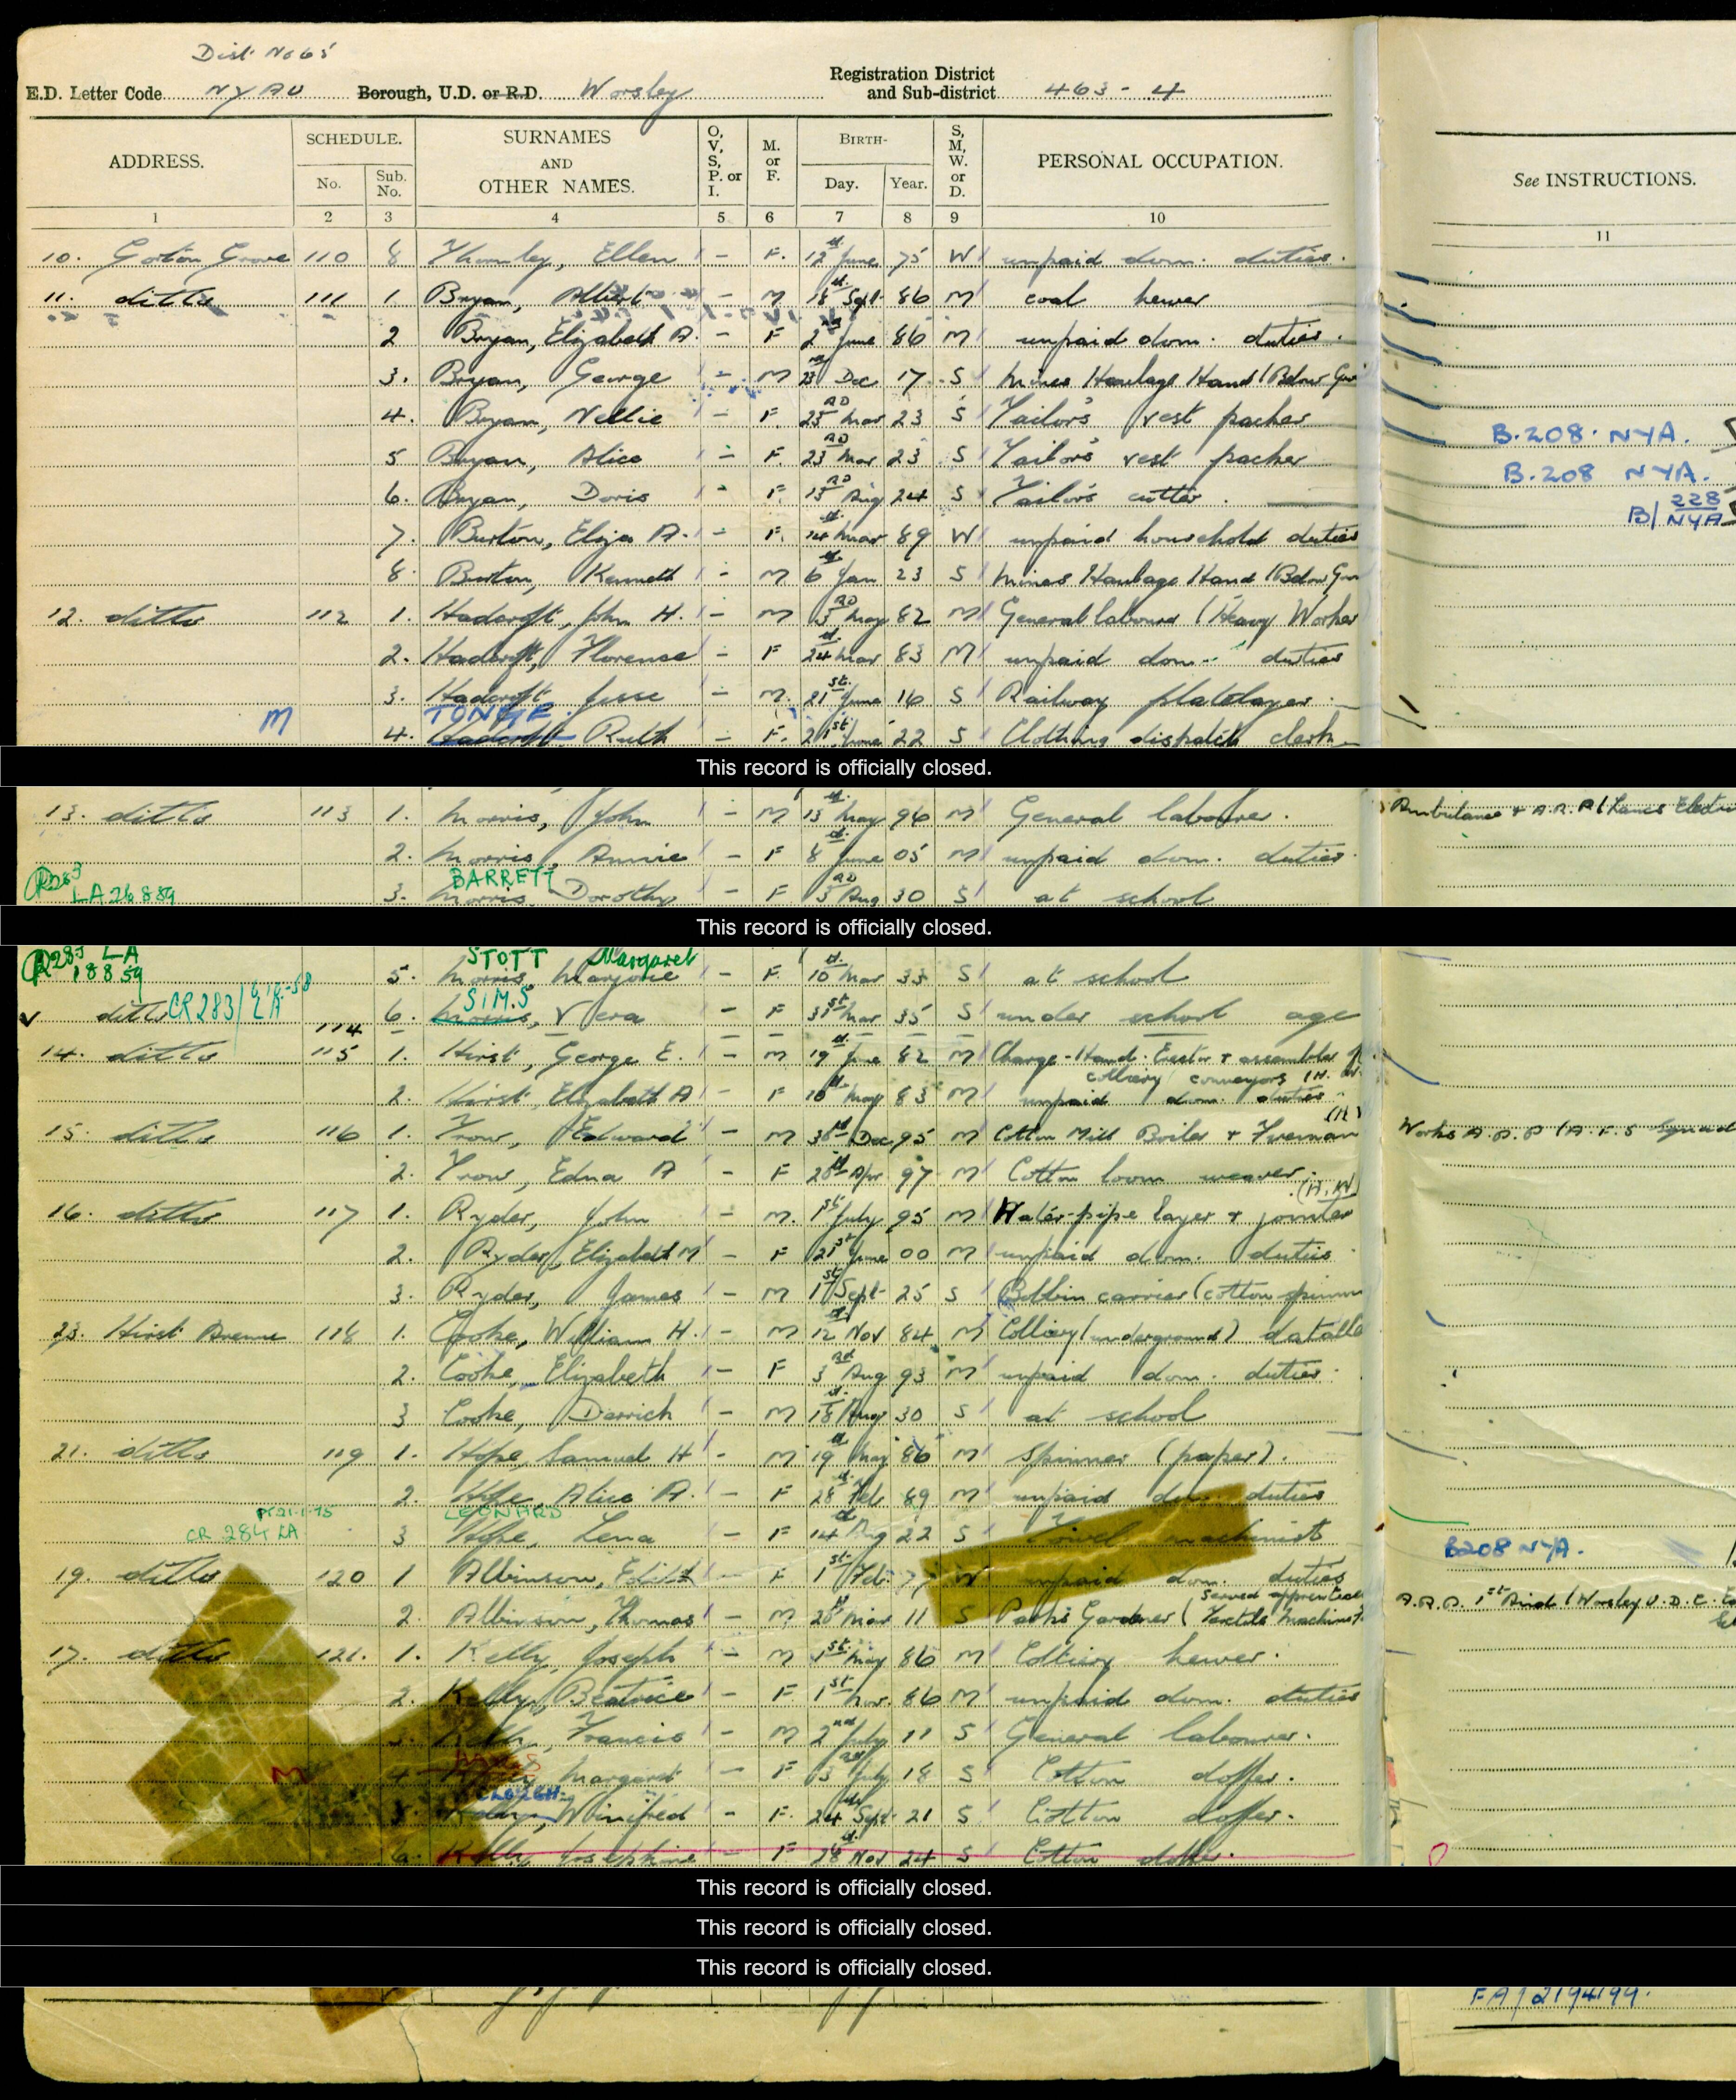 Dist No 65
E.D. Letter Code NYAU Borough, U.D. or R.D. Worsley Registration District and Sub-district 463-4
ADDRESS. SCHEDULE. No. Sub. No. SURNAMES AND OTHER NAMES. O, V, S, P. or I. M. or F. BIRTH- Day. Year. S, M, W. or D. PERSONAL OCCUPATION. See INSTRUCTIONS.
1 2 3 4 5 6 7 8 9 10 11
10. Gorton Grove 110 8 Thornley, Ellen - F. 12th June 75 W unpaid dom. duties.
11. ditto 111 1. Bryan, Albert - M 18th Sept 86 M coal hewer
2 Bryan, Elizabeth A. - F 2nd June 86 M unpaid dom. duties.
3. Bryan, George - M 23rd Dec 17 S Mines Haulage Hand (Below
4. Bryan, Nellie - F. 23rd Mar 23 S Tailor's vest packer B.208. NYA.
5 Bryan, Alice - F. 23rd Mar 23 S Tailor's vest packer B.208 NYA.
6. Bryan, Doris - F 13th Aug 24 S Tailor's cutter. B/228 NYA
7. Burton, Eliza A. - F. 14th Mar 89 W unpaid household duties
8. Burton, Kenneth - M 6th Jan 23 S Mines Haulage Hand (Below
12. ditto 112 1. Hadcroft, John H. - M 3rd May 82 M General labourer (Heavy Worker
2. Hadcroft, Florence - F 24th Mar 83 M unpaid dom. duties
3. Hadcroft Jesse - M. 21st June 16 S Railway platelayer.
M TONGE
4. Hadcroft Ruth - F. 21st June 22 S Clothing dispatch clerk
This record is officially closed.
13. ditto 113 1. Morris, John - M 13th May 96 M General labourer. Ambulance + A.R.P (Lancs Electric
2. Morris, Annie - F 8th June 05 M unpaid dom. duties.
CR283 LA 26889 BARRETT
3. Morris Dorothy - F 3rd Aug 30 S at school
This record is officially closed.
CR283 LA 18859 STOTT Margaret
5. Morris, Marjorie - F. 10th Mar 33 S at school
ditto CR283/LA SIMS
6. Morris, Vera - F 31st Mar 35 S under school age
114
14. ditto 115 1. Hirst, George E. - M 19th June 82 M Charge-Hand. Erector + assembler
colliery conveyors (H. W.
2. Hirst, Elizabeth A - F 10th May 83 M unpaid dom. duties
15. ditto 116 1. Trow, Edward - M 30th Dec 95 M Cotton Mill Boiler + Fireman Works A.R.P (A.F.S Squad
2. Trow, Edna A - F 28th Apr 97 M Cotton loom weaver.
(H.W)
16. ditto 117 1. Ryder, John - M. 1st July 95 M Water-pipe layer + jointer
2. Ryder, Elizabeth M - F 21st June 00 M unpaid dom. duties
3. Ryder, James - M 1st Sept 25 S Bobbin carrier (cotton spinn
23. Hirst Avenue 118 1. Cooke, William H. - M 12th Nov 84 M Colliery (underground) datalle
2. Cooke, Elizabeth - F 3rd Aug 93 M unpaid dom. duties.
3 Cooke, Derrick - M 18th Aug 30 S at school
21. ditto 119 1. Hope, Samuel H - M 19th May 86 M Spinner (paper).
2. Hope, Alice A. - F 28th Feb 89 M unpaid dom duties
CR 284 LA LEONARD
3 Hope, Lena - F 14th Aug 22 S Towel machinist B208 NYA.
19. ditto 120 1 Albinson, Edith - F 1st Feb. 77 W unpaid dom. duties
Served apprentice
2. Albinson, Thomas - M 28th Mar 11 S Parks Gardener (Textile Machinist A.R.P. 1st Aid (Worsley U.D.C.
17. ditto 121. 1. Kelly, Joseph - M 1st May 86 M Colliery hewer.
2. Kelly, Beatrice - F 1st Nov. 86 M unpaid dom. duties
3. Kelly, Francis - M 2nd July 11 S General labourer.
M
4. Margaret - F 13th July 18 S Cotton doffer.
CLOUGH
5. Kelly, Winifred - F. 24th Sept 21 S Cotton doffer.
6. Kelly, Josephine - F 28th Nov 24 S Cotton doffer.
This record is officially closed.
This record is officially closed.
This record is officially closed.
FA/2194199.